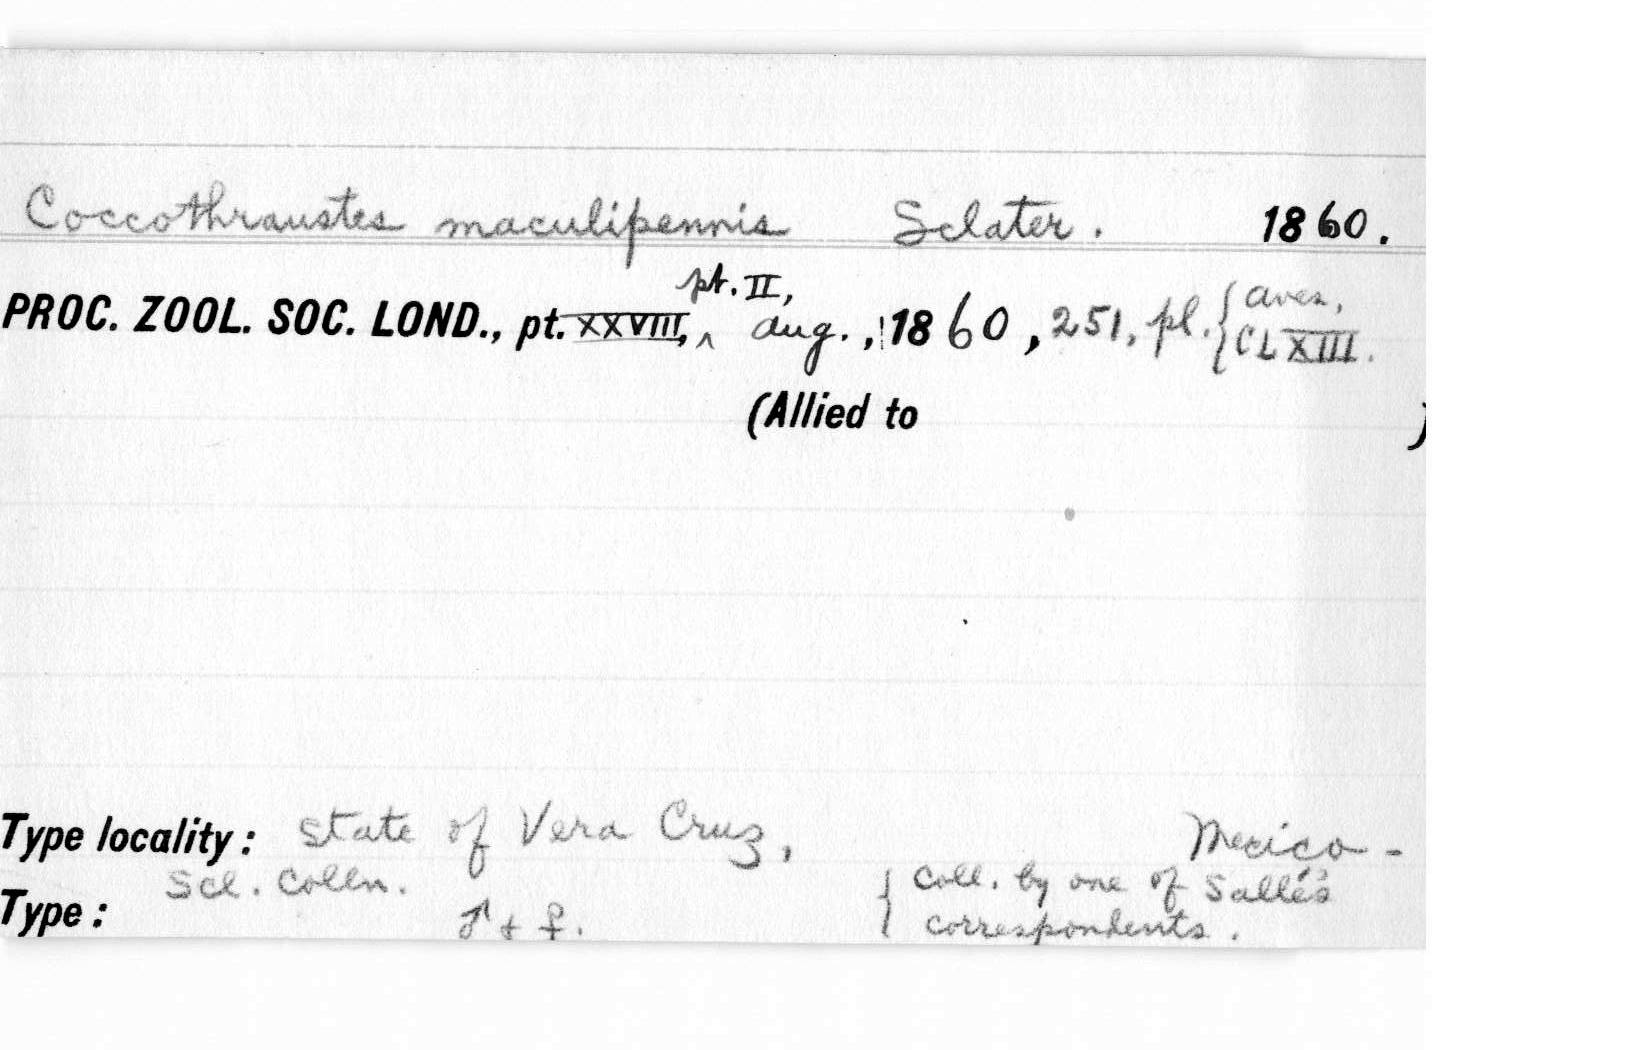 Coccothraustes maculipennis Sclater. 1860.
pt. II,
PROC. ZOOL. SOC. LOND., pt. XXVIII, ^ Aug., 1860, 251, pl. { Aves,
CLXIII.
(Allied to )
Type locality: State of Vera Cruz, Mexico -
Scl. Colln. { Coll. by one of Sallé's
Type: ♂ + ♀. correspondents.